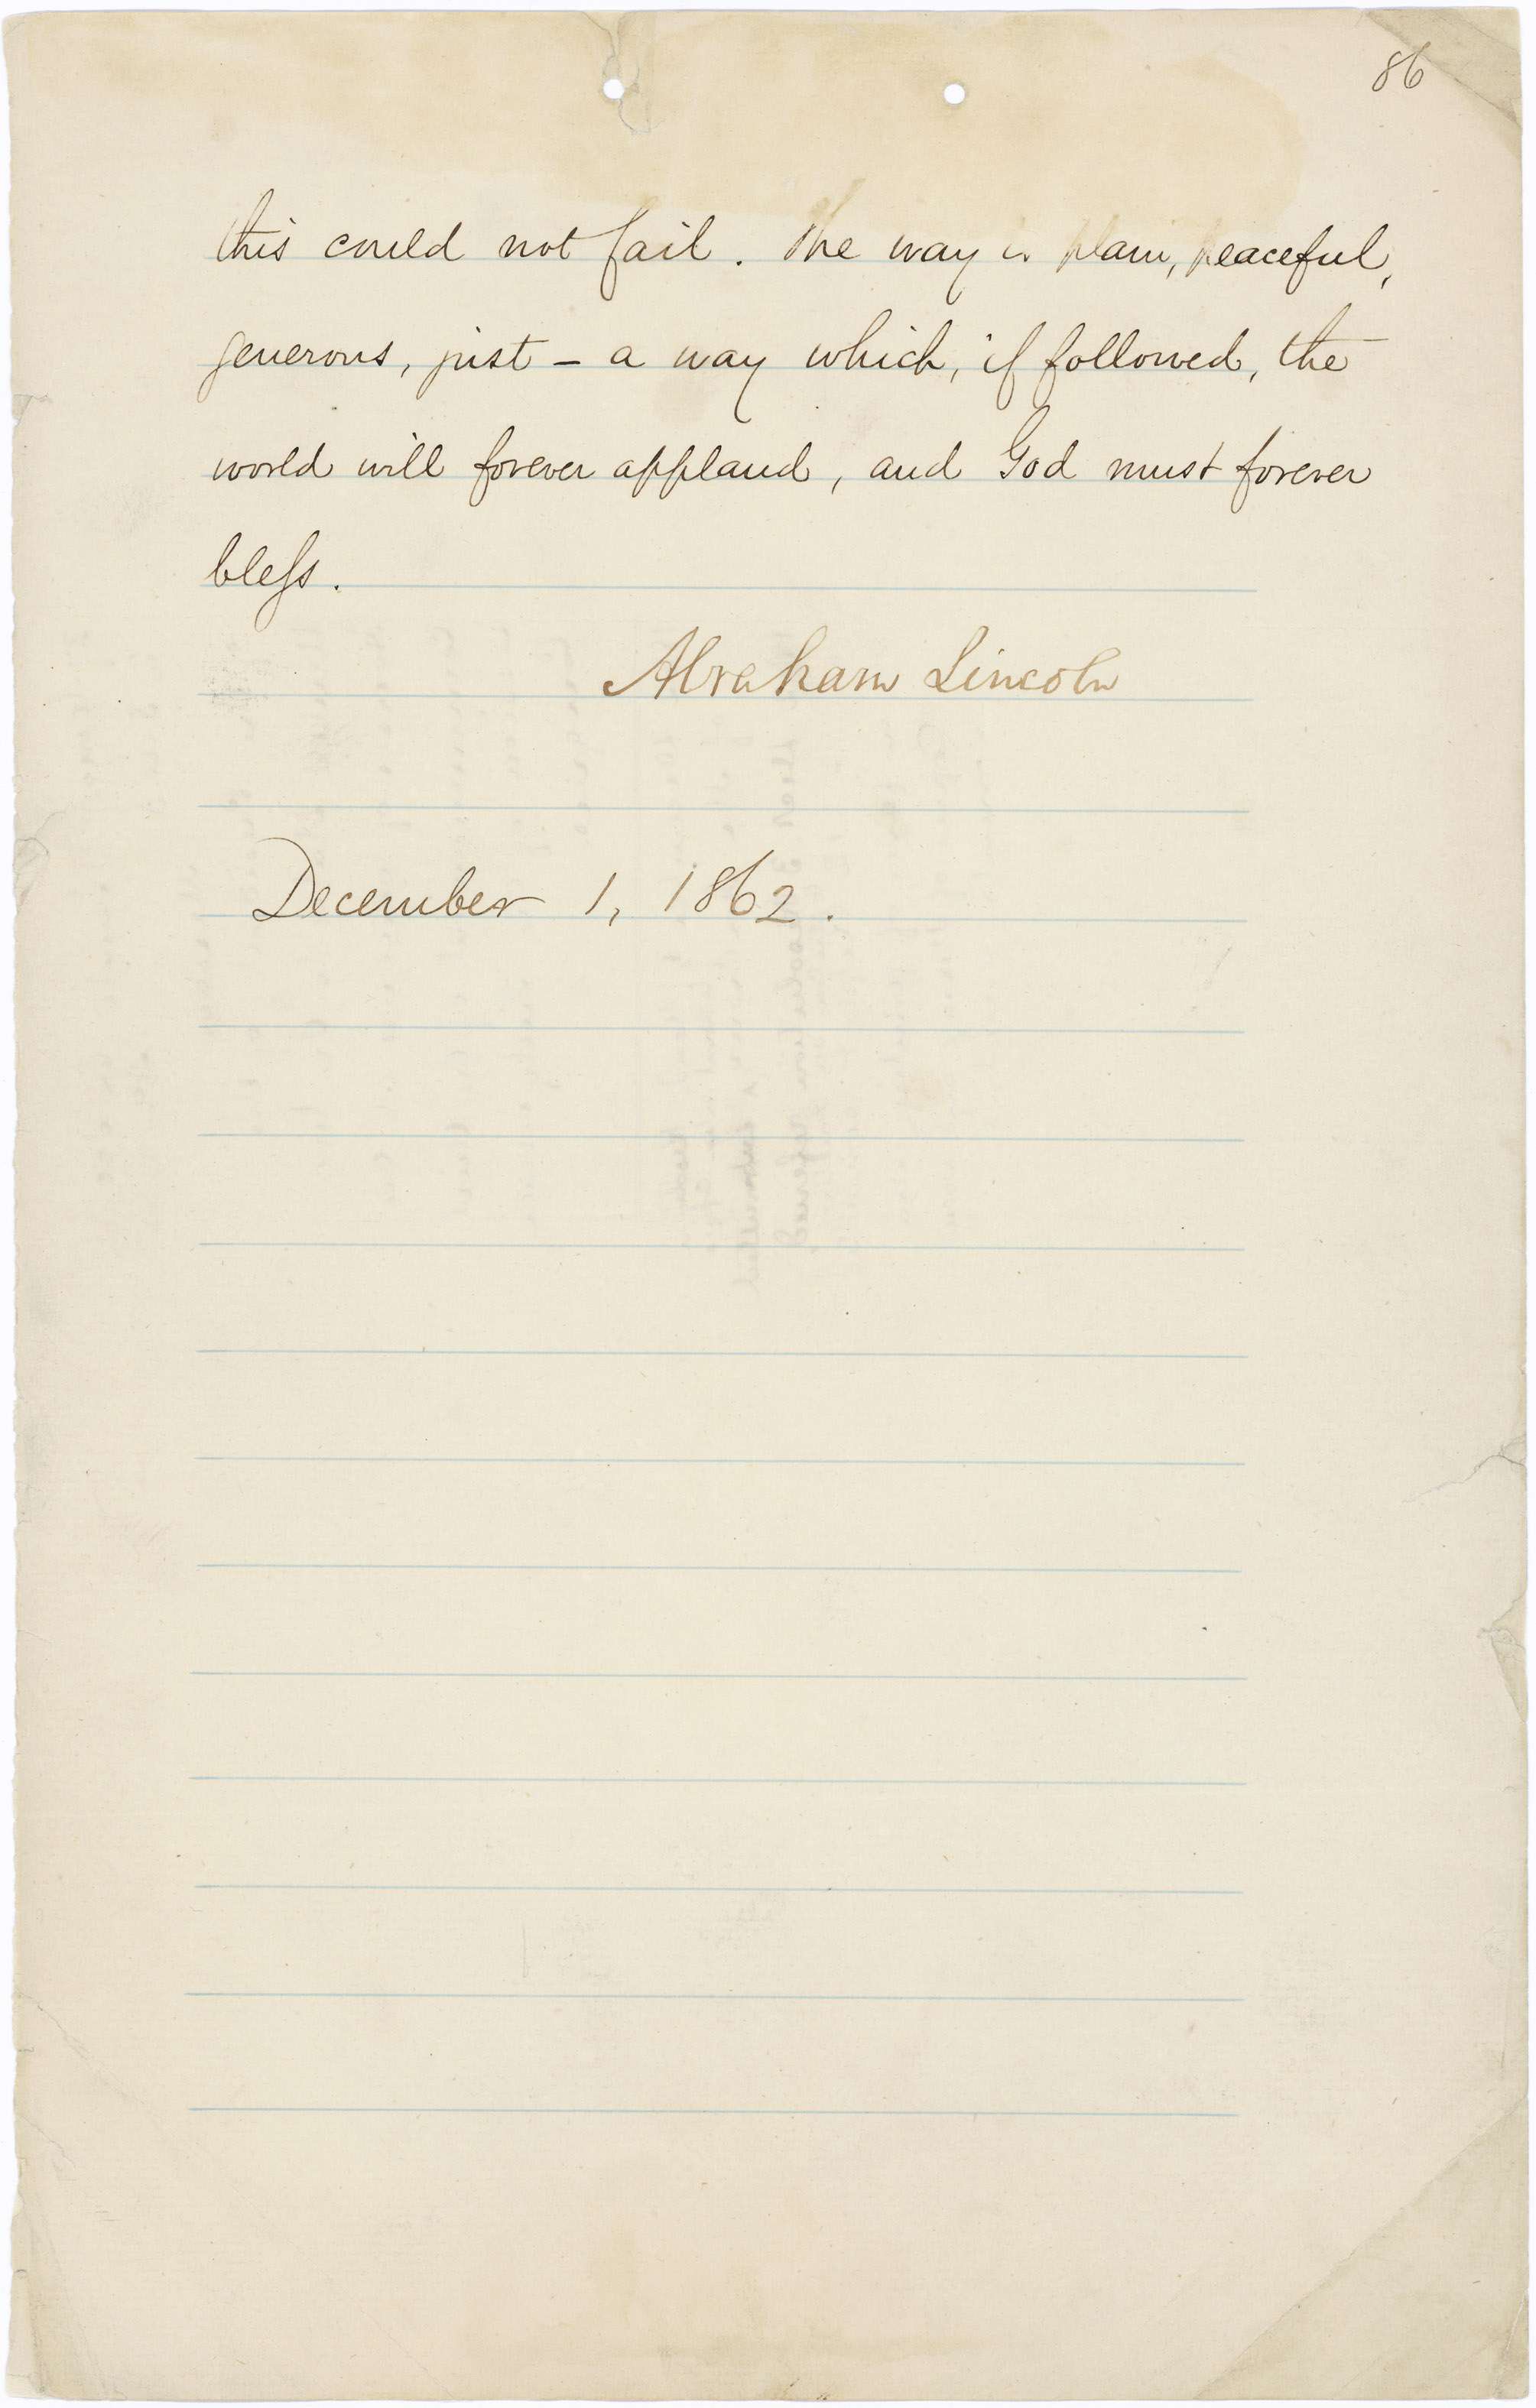 86
this could not fail. The way is plain, peaceful,
generous, just — a way which, if followed, the
world will forever applaud, and God must forever
bless.
Abraham Lincoln
December 1, 1862.